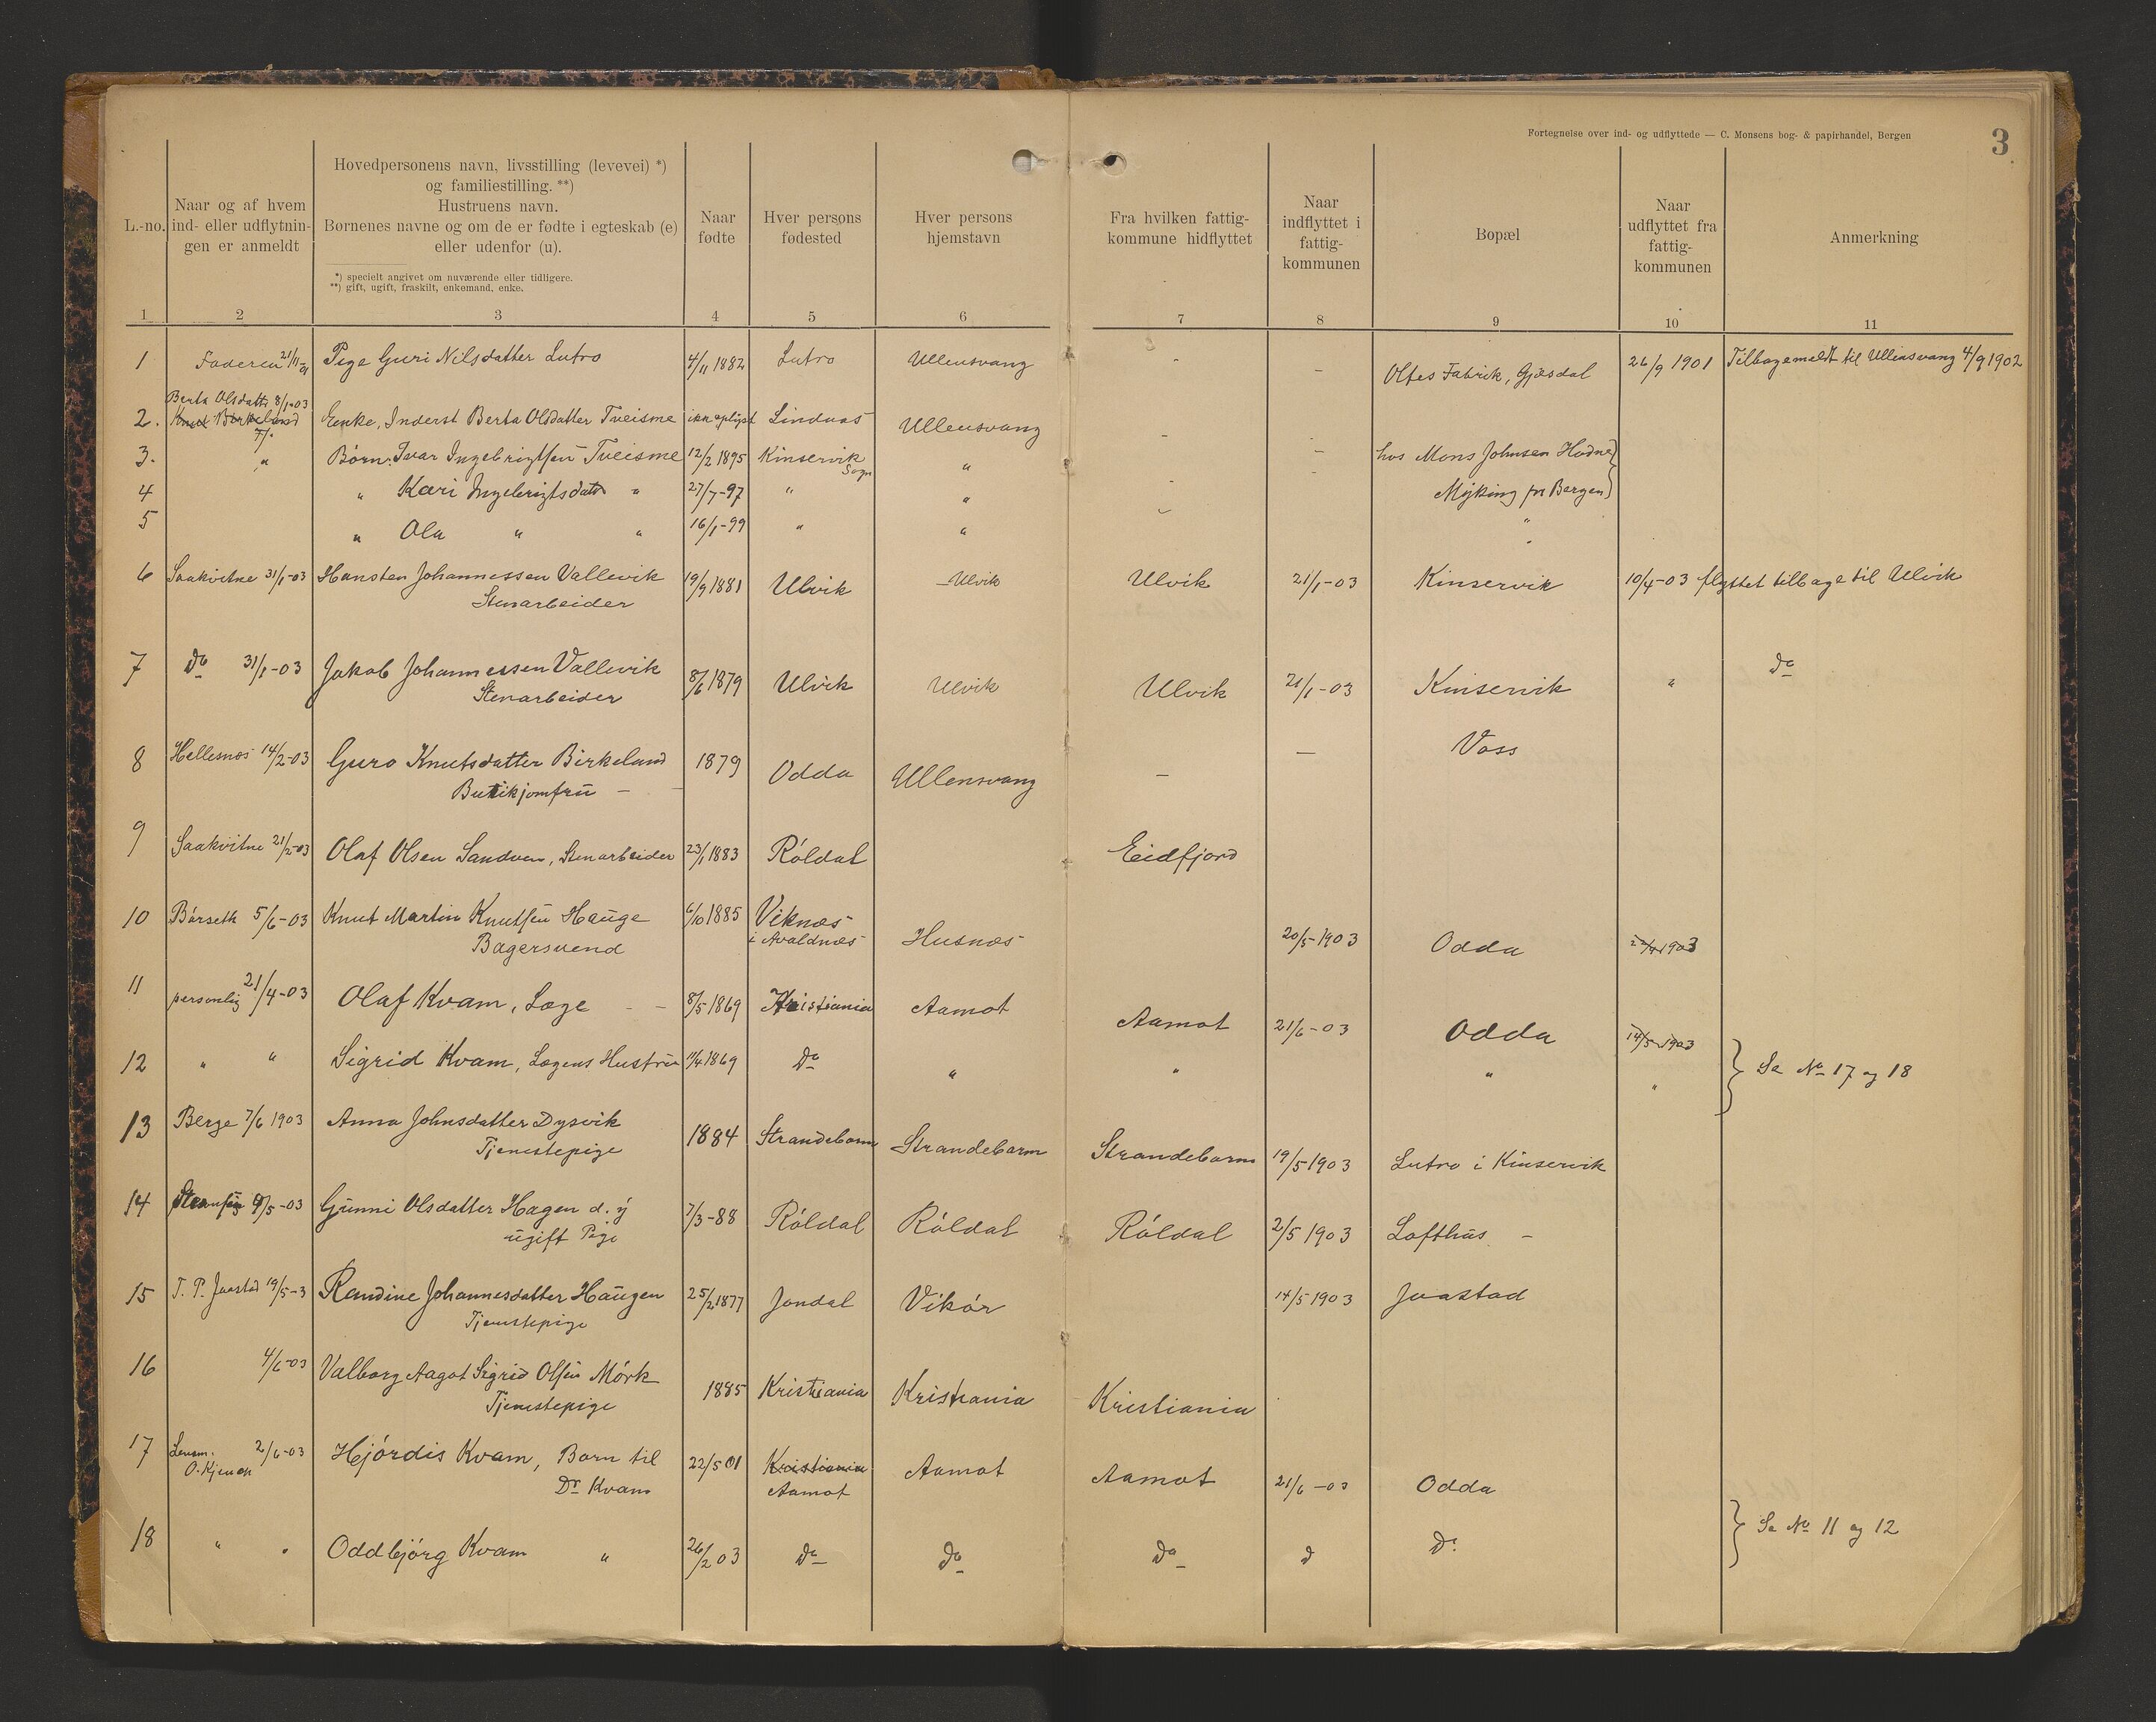 Fortegnelse over ind- og udflyttede — C. Monsens bog- & papirhandel, Bergen
3
L.-no.
Naar og af hvem
ind- eller udflytnin-
gen er anmeldt
Hovedpersonens navn, livsstilling (levevei) *)
og familiestilling. **)
Hustruens navn.
Børnenes navne og om de er fødte i egteskab (e)
eller udenfor (u).
*) specielt angivet om nuværende eller tidligere.
**) gift, ugift, fraskilt, enkemand, enke.
Naar
fødte
Hver persons
fødested
Hver persons
hjemstavn
Fra hvilken fattig-
kommune hidflyttet
Naar
indflyttet i
fattig-
kommunen
Bopæl
Naar
udflyttet fra
fattig-
kommunen
Anmerkning
1 2 3 4 5 6 7 8 9 10 11
1 Faderen 21/11-01 Pige Guri Nilsdatter Lutro 4/11 1882 Lutro Ullensvang - - Oltes Fabrik, Gjæsdal 26/9 1901 Tilbagemeldt til Ullensvang 4/9 1902
Berta Olsdatter 8/1-03
2. Knut Birkeland Enke, Inderst Berta Olsdatter Tveisme ikke oplyst Lindaas Ullensvang - -
7/1
3. " Børn: Ivar Ingebrigtsen Tveisme 12/2 1895 Kinservik Sogn " - hos Mons Johnsen Hodne
4 " Kari Ingebrigtsdatr " 27/7-97 " " - - Myking pr Bergen
5 " Ola " " 16/1-99 " " - "
6 Saakvitne 31/1-03 Hansten Johannessen Vallevik 19/9 1881 Ulvik - Ulvik Ulvik 21/1-03 Kinservik 10/4-03 flyttet tilbage til Ulvik
Stenarbeider
7 Do 31/1-03 Jakob Johannessen Vallevik 8/6 1879 Ulvik Ulvik Ulvik 21/1-03 Kinservik " Do
Stenarbeider
8 Hellesnes 14/2-03 Guro Knutsdatter Birkeland 1879 Odda Ullensvang - - Voss
Butikjomfru - -
9 Saakvitne 21/2-03 Olaf Olsen Sandven, Stenarbeider 23/1 1883 Róldal Eidfjord
10 Bórseth 5/6-03 Knut Martin Knutsen Hauge 6/10 1885 Viknæs i Avaldnæs Husnæs 20/5-1903 Odda 1903
Bagersvend
11 personlig 21/4-03 Olaf Kvam, Læge - - 8/5 1869 Kristiania Aamot Aamot 21/6-03 Odda 14/5 1903
12 " " Sigrid Kvam, Lægens Hustru 11/4 1869 Do " " " " Se No 17 og 18
13 Berge 7/6 1903 Anna Johnsdatter Dysvik 1884 Strandebarm Strandebarm Strandebarm 19/5 1903 Lutro i Kinservik
Tjenestepige
14 9/5-03 Gunni Olsdatter Hagen d. y 7/3-88 Róldal Róldal Róldal 2/5 1903 Lofthus -
ugift Pige
15 T. P. Jaastad 19/5-3 Randine Johannesdatter Haugen 25/2 1877 Jondal Vikór 14/5 1903 Jaastad
Tjenestepige
16 4/6-03 Valborg Aagot Sigrid Olsen Mórk 1885 Kristiania Kristiania Kristiania
Tjenestepige
17 Lensm. O. Kjenon 2/6-03 Hjórdis Kvam, Barn til 22/5 01 Kristiania Aamot Aamot 21/6-03 Odda
Dr Kvam Aamot
18 " " Oddbjórg Kvam " 26/2 03 Do Do Do D Do Se No 11 og 12